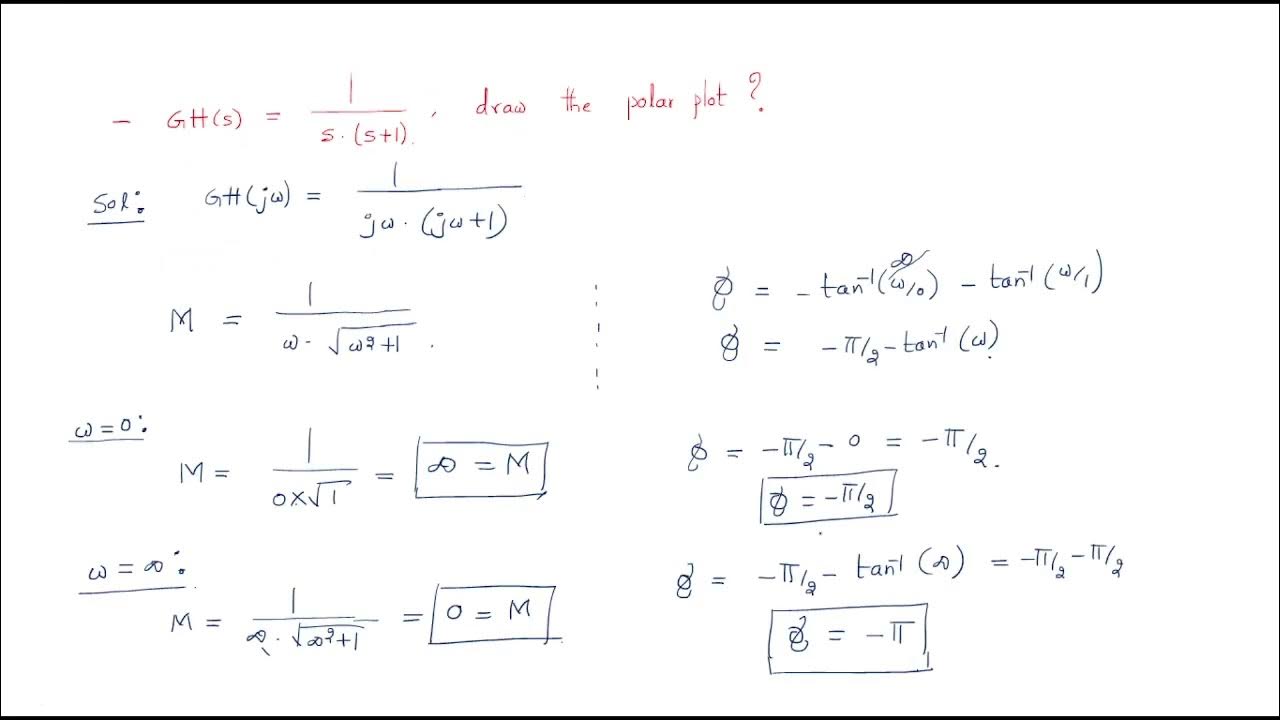 - GH(s) = 1 / s·(s+1) , draw the polar plot ?
Sol: GH(jω) = 1 / jω·(jω+1)
M = 1 / ω·√ω²+1 .
ϕ = - tan⁻¹(ω/0) ∞ - tan⁻¹(ω/1)
ϕ = -π/2 - tan⁻¹(ω)
ω=0:
M = 1 / 0×√1 = ∞ = M
ϕ = -π/2 - 0 = -π/2.
ϕ = -π/2
ω=∞:
M = 1 / ∞·√∞²+1 = 0 = M
ϕ = -π/2 - tan⁻¹(∞) = -π/2 - π/2
ϕ = -π